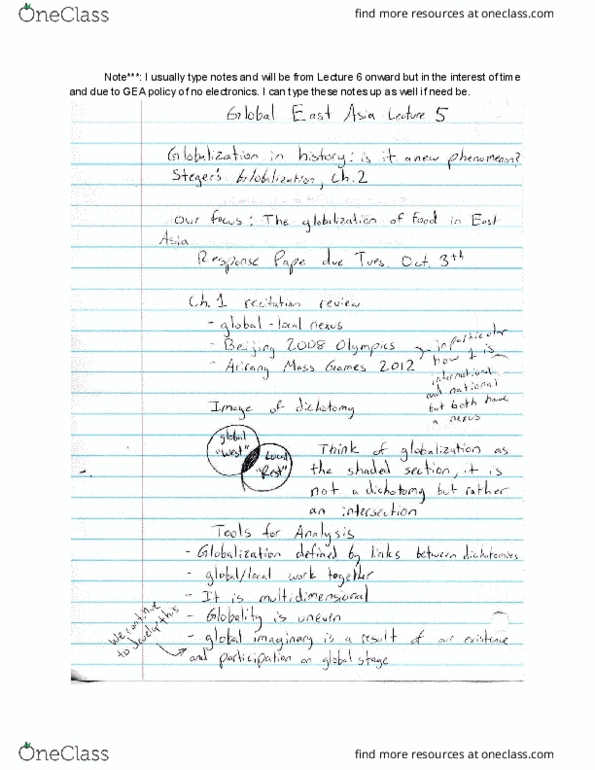 OneClass
find more resources at oneclass.com
Note***: I usually type notes and will be from Lecture 6 onward but in the interest of time
and due to GEA policy of no electronics. I can type these notes up as well if need be.
Global East Asia Lecture 5
Globalization in history: is it a new phenomeon?
Steger's Globalization, Ch.2
Our focus: The globalization of food in East
Asia
Response Pape due Tues. Oct. 3th
Ch. 1 recitation review
- global-local nexus
- Beijing 2008 Olympics
- Arirang Mass Games 2012
in particular
how 1 is
international
and national
but both have
a nexus
Image of dichotomy
global
"West"
Local
"Rest"
Think of globalization as
the shaded section, it is
not a dichotomy but rather
an intersection
Tools for Analysis
- Globalization defined by links between dichotomies
- global/local work together
- It is multidimensional
- Globality is uneven
- global imaginary is a result of our existence
and participation on global stage
We continue
to develop this
OneClass
find more resources at oneclass.com